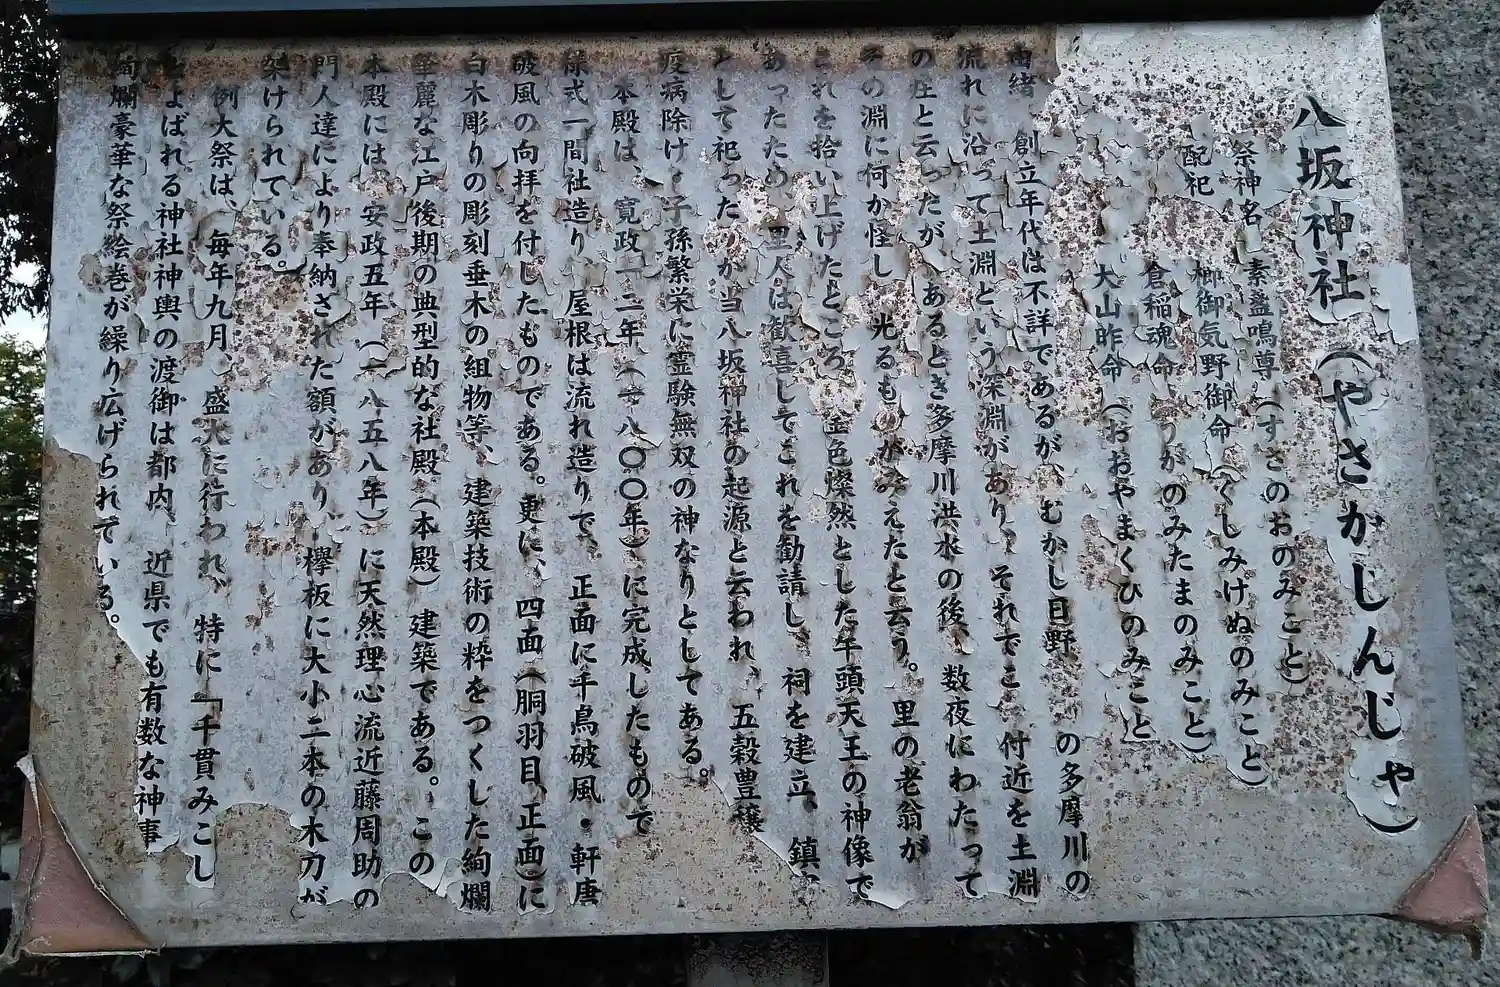 八坂神社(やさかじんじゃ)
祭神名 素盞鳴尊(すさのおのみこと)
配祀 櫛御気野御命(くしみけぬのみこと)
倉稲魂命(うがのみたまのみこと)
大山昨命(おおおやまくひのみこと
由緒 創立年代は不詳であるが、むかし日野 の多摩川の
流れに沿って土淵という深淵があり、それでこ 付近を土淵
の庄と云ったが、あるとき多摩川洪水の後、数夜にわたって
その淵に何か怪し 光るも がみえたと云う。里の老翁が
これを拾い上げたところ 金色燦然とした午頭天王の神像で
あったため、里人は歓喜してこれを勧請し、祠を建立、鎮
として祀った が当八坂神社の起源と云われ、五穀豊穣
疫病除け 子孫繁栄に霊験無双の神なりとしてある。
本殿は、寛政一二年(一八〇〇年)に完成したもので
様式一間社造り、屋根は流れ造りで、正面に千鳥破風・軒唐
破風の向拝を付したものである。更に、四面(胴羽目、正面)に
白木彫りの彫刻垂木の組物等、建築技術の粋をつくした絢爛
華麗な江戸後期の典型的な社殿(本殿)建築である。この
本殿には、安政五年(一八五八年)に天然理心流近藤周助の
門人達により奉納された額があり、欅板に大小二本の木刀が
架けられている。
例大祭は、毎年九月、盛大に行われ、特に『千貫みこし
とよばれる神社神輿の渡御は都内、近県でも有数な神事
絢爛豪華な祭絵巻が繰り広げられている。